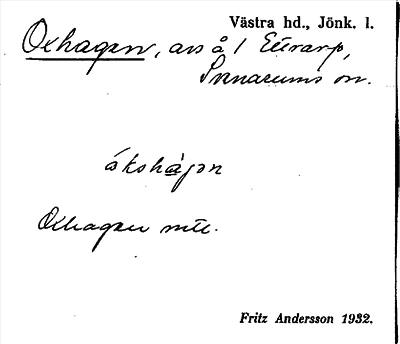 Västra hd., Jönk. l.
Oxhagen, avs å 1 Ettarp,
Svenarums sn.
ókshàgən
Oxhagen mtl.
Fritz Andersson 1932.